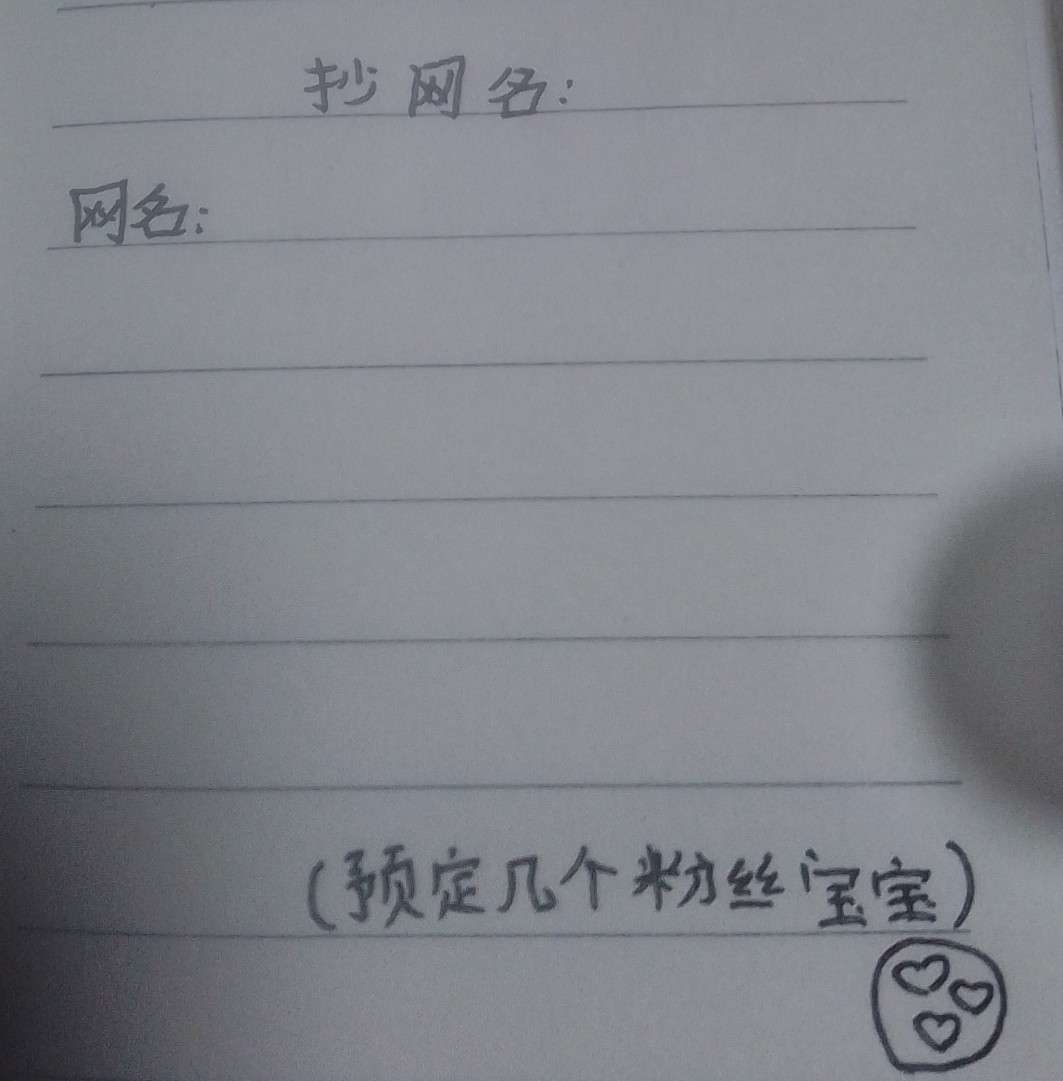 抄网名:
网名:
(预定几个粉丝宝宝)